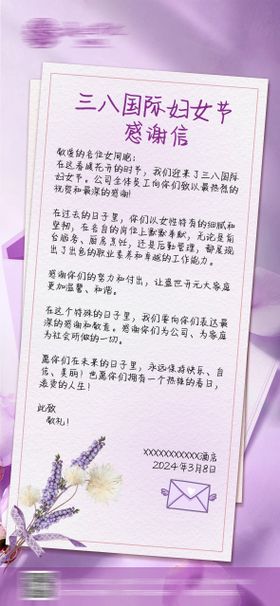 三八国际妇女节
感谢信
敬爱的各位女同胞：
在这春暖花开的时节，我们迎来了三八国际
妇女节。公司全体员工向你们致以最热烈的
祝贺和最深的感谢！
在过去的日子里，你们以女性特有的细腻和
坚韧，在各自的岗位上默默奉献，无论是前
台服务、厨房烹饪，还是后勤管理，都展现
出了出色的职业素养和卓越的工作能力。
感谢你们的努力和付出，让盛世开元大家庭
更加温馨、和谐。
在这个特殊的日子里，我们要向你们表达最
深的感谢和敬意。感谢你们为公司、为家庭
为社会所做的一切。
愿你们在未来的日子里，永远保持快乐、自
信、美丽！也愿你们拥有一个热烈的春日，
滚烫的人生！
此致
敬礼！
XXXXXXXXXXX酒店
2024年3月8日